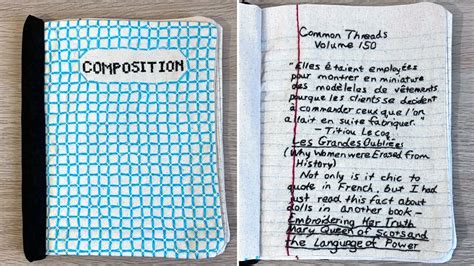 COMPOSITION
Common Threads
Volume 150
"Elles étaient employées
pour montrer en miniature
des modèleles de vêtements,
pourque les clients se decident
à commander ceux que l'on
allait en suite fabriquer."
- Titiou Lecoq
Les Grandes Oubliées
(Why Women were Erased from
History)
Not only is it chic to
quote in French, but I had
just read this fact about
dolls in another book -
Embroidering Her Truth
Mary Queen of Scots and
the Language of Power